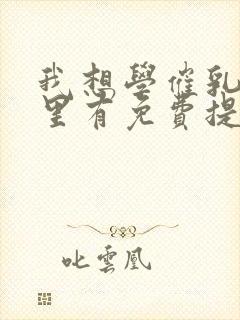 我想學催乳
里有免費提
叱雲凰